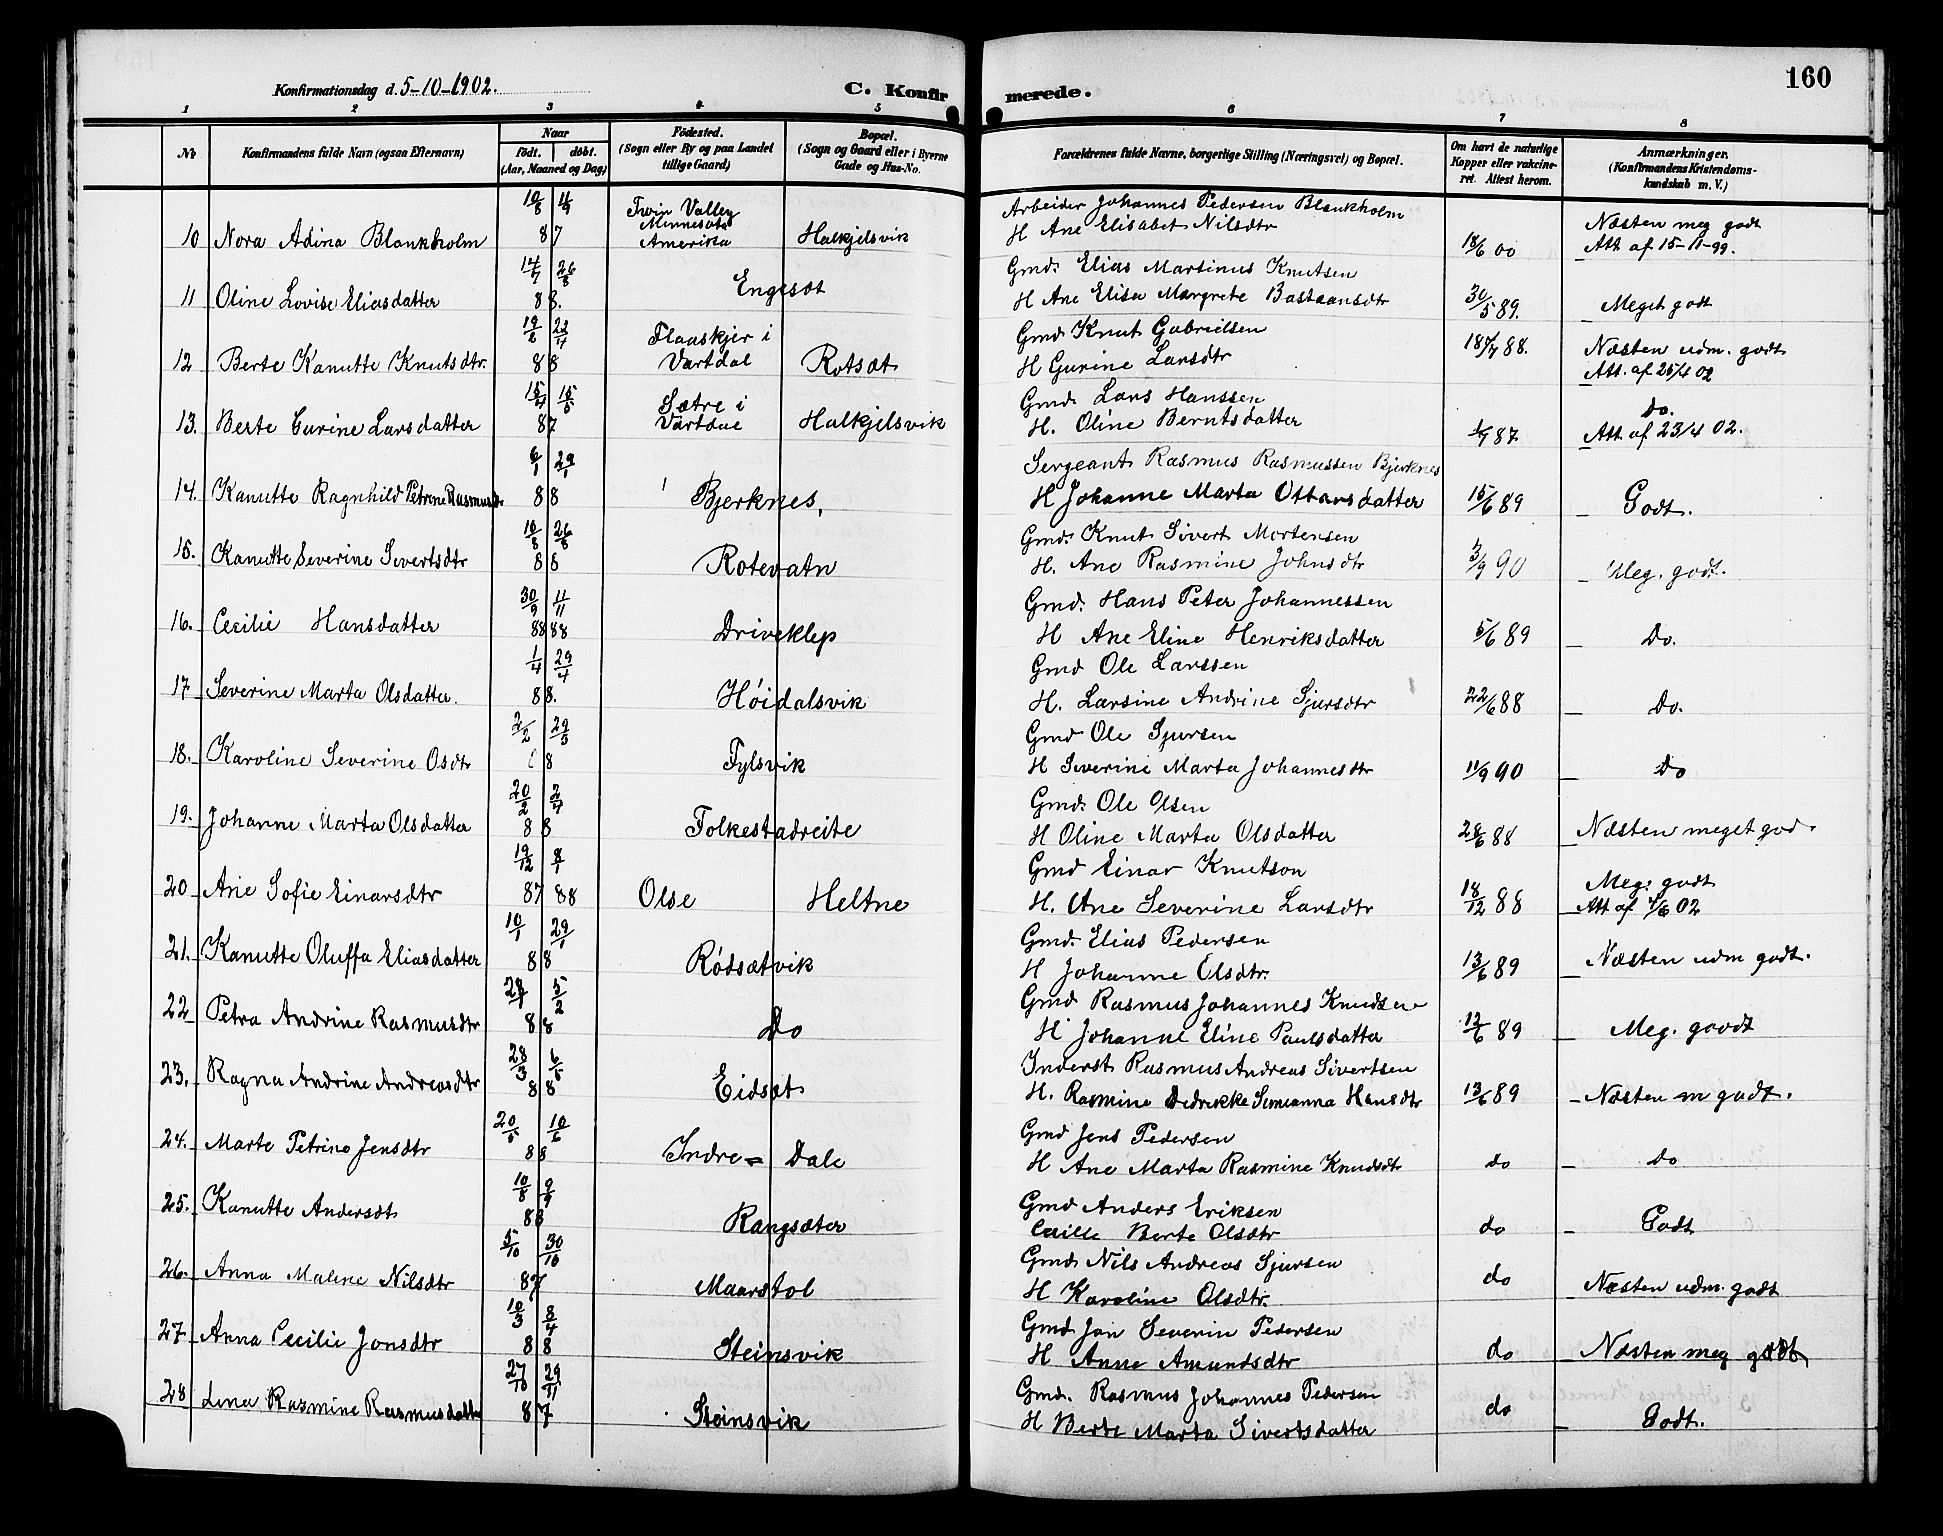 160
Konfirmationsdag d. 5-10-1902.
C. Konfirmerede.
1 2 3 4 5 6 7 8
No
Konfirmandens fulde Navn (ogsaa Efternavn)
Naar
födt. döbt.
(Aar, Maaned og Dag)
Födested.
(Sogn eller By og paa Landet
tillige Gaard)
Bopæl.
(Sogn og Gaard eller i Byerne
Gade og Hus-No.
Forældrenes fulde Navne, borgerlige Stilling (Næringsvei) og Bopæl.
Om havt de naturlige
Kopper eller vakcine-
ret. Attest herom.
Anmærkninger.
(Konfirmandens Kristendoms-
kundskab m. V.)
10 Nora Adina Blankholm 87 Twin Valley Minnesota Amerika Halkjelsvik
Arbeider Johannes Pedersen Blankholm
H Ane Elisabet Nilsdtr 18/6 00 Næsten meg godt
Att af 15-11-99.
11 Oline Lovise Eliasdatter 14/7 26/8 88. Engesæt
Gmd. Elias Martinus Knutsen
H Ane Elisa Margrete Bastiansdtr 30/5 89. Meget godt
12 Berte Kanutte Knutsdtr. 88 Flaaskjer i Vartdal Rotsæt
Gmd Knut Gabrielsen
H Gurine Larsdtr 18/7 88. Næsten udm. godt
Att. af 25/4 02
13. Berte Gurine Larsdatter 15/4 87 Sætre i Vartdal Halkjelsvik
Gmd. Lars Hanssen
H. Oline Berntsdatter 87 Do.
Att af 23/4 02.
14. Kanutte Ragnhild Petrine Rasmusdtr 6/1 29/1 88 Bjerknes,
Sergeant Rasmus Rasmussen Bjerknes
H Johanne Marta Ottarsdatter 15/6 89 Godt.
15. Kanutte Severine Sivertsdtr 10/8 26/8 88 Rotevatn
Gmd. Knut Sivert Mortensen
H. Ane Rasmine Johnsdtr 3/9 90 Meg. godt.
16. Cecilie Hansdatter 30/9 11/11 88 88 Driveklep
Gmd. Hans Peter Johannessen
H Ane Eline Henriksdatter 5/6 89 Do.
17 Severine Marta Olsdatter. 1/4 29/4 88. Høidalsvik
Gmd Ole Larssen
H. Larsine Andrine Sjursdtr 22/6 88 Do.
18. Karoline Severine Osdtr 2/2 8 Fylsvik
Gmd Ole Sjursen
H Severine Marta Johannesdtr 11/9 90 Do
19. Johanne Marta Olsdatter 20/2 2/4 88 Folkestadreite
Gmd. Ole Olsen
H Oline Marta Olsdatter 28/6 88 Næsten meget god.
20 Ane Sofie Einarsdtr 19/12 8/1 87 88 Olse Heltne
Gmd Einar Knutson
H. Ane Severine Larsdtr 18/12 88 Meg. godt
Att af /6 02
21. Kanutte Oluffa Eliasdatter 10/1 29/1 88 Rødsætvik
Gmd. Elias Pedersen
H Johanne Olsdtr. 13/6 89 Næsten udm godt.
22 Petra Andrine Rasmusdtr 5/2 88 Do
Gmd Rasmus Johannes Knudsen
H Johanne Eline Paulsdatter 12/6 89 Meg. goodt
23. Ragna Andrine Andreasdtr 28/3 6/5 88 Eidsæt
Inderst Rasmus Andreas Sivertsen
H. Rasmine Didrikke Simianna Hansdtr 13/6 89 Næsten m godt.
24. Marte Petrine Jensdtr 20/5 10/6 88 Indre - Dale
Gmd Jens Pedersen
H Ane Marta Rasmine Knudsdtr do Do
25. Kanutte Andersdt 10/8 9/9 88 Rangsæter
Gmd Anders Eriksen
Berte Olsdtr do Godt
26. Anna Maline Nilsdtr 5/10 30/10 87 Maarstol
Gmd. Nils Andreas Sjursen
H Karoline Olsdtr. do Næsten udm. godt
27 Anna Cecilie Jonsdtr 10/3 8/4 88 Steinsvik
Gmd Jon Severin Pedersen
H Anne Amundsdtr do Næsten meg godt
28 Lina Rasmine Rasmusdatter 27/10 29/11 87 Steinsvik
Gmd. Rasmus Johannes Pedersen
H Berte Marta Sivertsdatter do Godt.